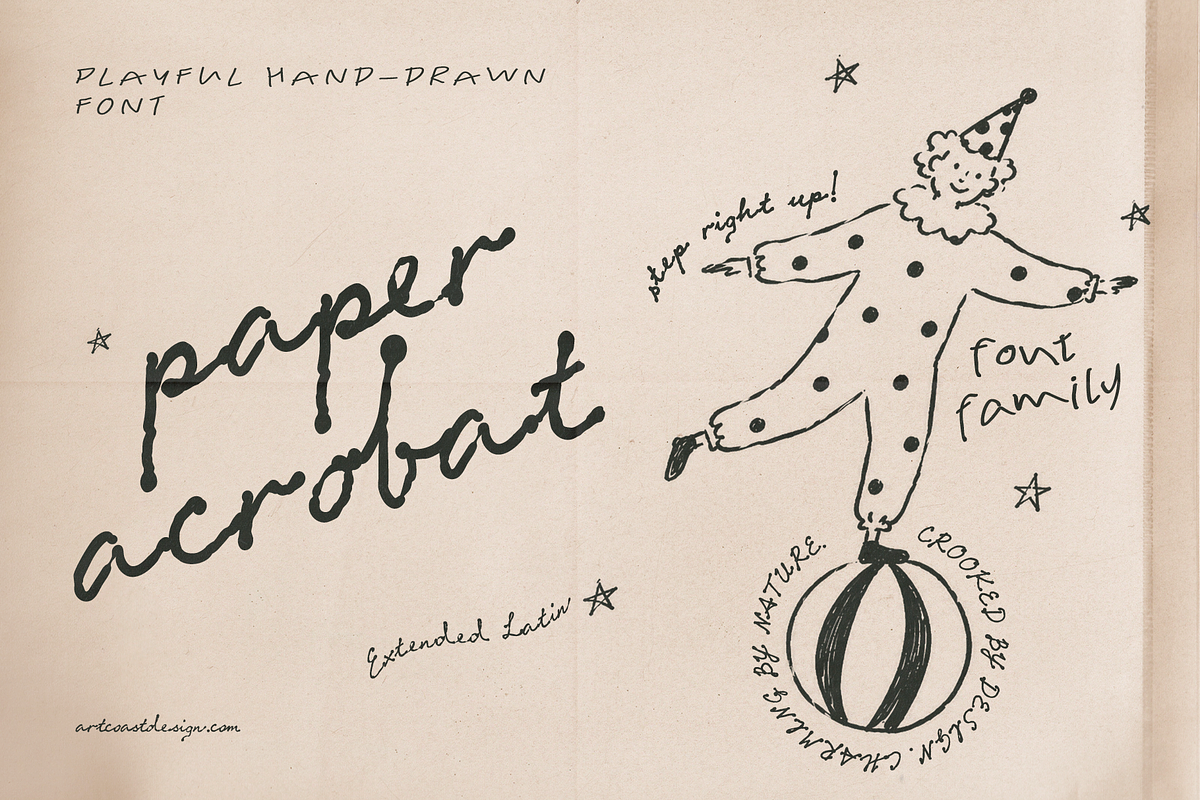 PLAYFUL HAND-DRAWN
FONT
step right up!
paper
acrobat
font
family
Extended Latin
CROOKED BY DESIGN. CHARMING BY NATURE.
artcoastdesign.com